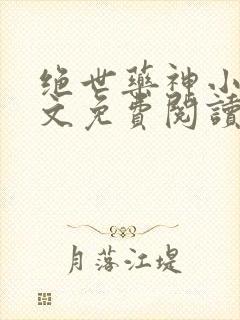 绝世藥神小
文免費閱讀
月落江堤